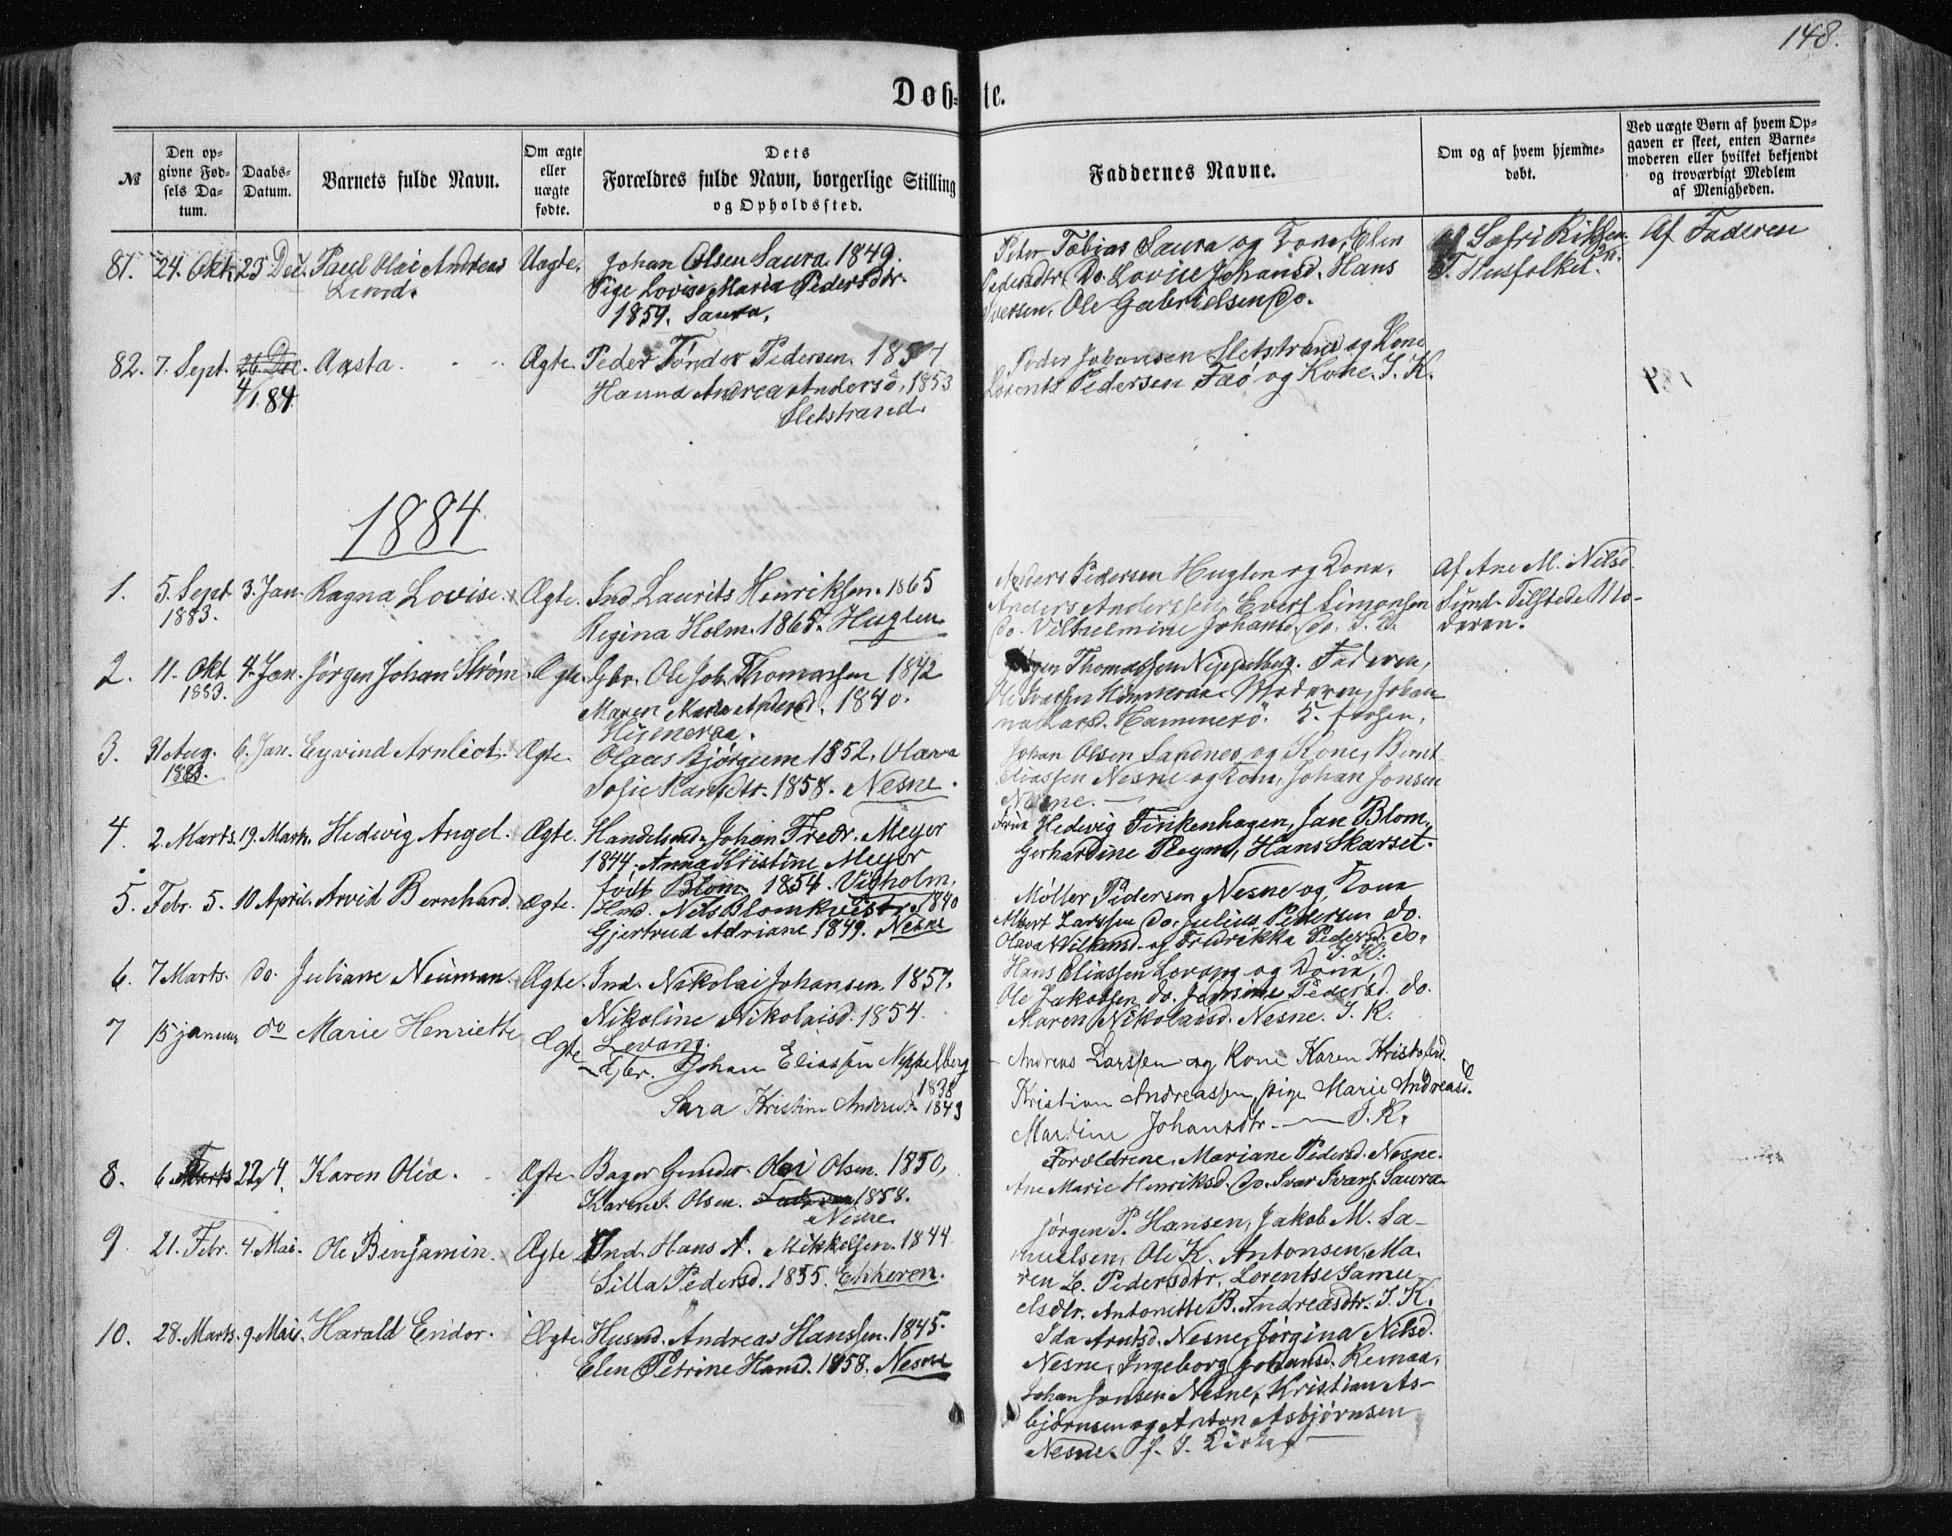 148.
Døb-te.
№
Den op-
givne Fød-
sels Da-
tum.
Daabs-
Datum.
Barnets fulde Navn.
Om ægte
eller
uægte
fødte.
Dets
Forældres fulde Navn, borgerlige Stilling
og Opholdssted.
Faddernes Navne.
Om og af hvem hjemme-
døbt.
Ved uægte Børn af hvem Op-
gaven er skeet, enten Barne-
moderen eller hvilket bekjendt
og troværdigt Medlem
af Menigheden.
81. 24. Okt. 23 Dec. Paul Olai Andreas
Lund.
Uægte.
Johan Olsen Saura. 1849.
Pige Lovise Maria Pedersdtr.
1859. Saura.
Peter Tobias Saura og Kone, Elen
Pedersdtr. Do. Lovise Johansd. Hans
Iversen, Ole Gabrielsen Do.
T. Husfolket.
Af Faderen
82. 7. Sept. 26 Dec. Aasta.
4/1.84
Ægte.
Peder Tønder Pedersen. 1857
Hanna Andrea Andersd. 1853
Sletstrand.
Peder Johansen Sletstrand og Kone
Lorents Pedersen Faø og Kone. I. K.
1884
1. 5. Sept 3. Jan. Ragna Lovise. Ægte.
1883.
Ind. Laurits Henriksen. 1865
Regina Holm. 1865. Huglen
Anders Pedersen Huglen og Kone,
Anders Anderssen, Evert Simonsen
Do. Vilhelmine Johansd. Do. I. K.
Af Ane M. Nilsd.
Sund. Tilstede Mo-
deren.
2. 11. Okt 4. Jan. Jørgen Johan Strøm. Ægte.
1883.
Gbr. Ole Joh. Thomassen 1842
Maren Maria Andersd. 1840.
Jørgen Thomassen Nippelberg. Faderen,
Moderen, Johan-
na Larsd. Hammerø.
3. 31 Aug. 6. Jan. Eyvind Arnliot. Ægte.
1883.
Olaus Bjørgum 1852, Olava
Sofie Hansdtr. 1858. Nesne.
Johan Olsen Sandnes og Kone, Bernt
Eliassen Nesne og Kone, Johan Jonsen
Nesne.
4. 2. Marts. 19. Marts. Hedvig Angel. Ægte.
Handelsmd. Johan Fredr. Meyer
1844. Anna Kristine Meyer
født Blom. 1854. Vigholm.
Frue Hedvig Finkenhagen, Jan Blom,
Gerhardine Pleym, Hans Skarset.
5. Febr. 5. 10 April. Arvid Bernhard. Ægte.
Hmd. Nils Blomkvist 1840
Gjertrud Adriane 1849. Nesne
Møller Pedersen Nesne og Kone
Albert Larssen Do. Julius Pedersen do.
Olava Nilsand. og Fredrikka Pedersd. do.
I. K.
6. 7 Marts. do. Juliane Neuman. Ægte.
Ind. Nikolai Johansen. 1857.
Nikoline Nikolaisd. 1854.
Levang.
Hans Eliassen Levang og Kone,
Ole Jakobsen do. Jensine Pedersd. do.
Maren Nikolaisd. Nesne. I. K.
7 15 januar do Marie Henriette Ægte
Gbr. Johan Eliassen Nippelberg
1838
Sara Kristine Andersd. 1843
Andreas Larssen og Kone Karen Kristofersd.
Kristian Andreassen, pige Marie Andreasd.
Martine Johansdtr. — I. K.
8. 6 Marts 22/4. Karen Olia. Ægte.
Bager Gunder Olai Olsen. 1850,
Karen J. Olsen. 1858.
Nesne
Forældrene, Mariane Pedersd. Nesne.
Ane Marie Henriksd. Do. Ivar Ivars. Saura
9. 21. Febr. 4. Mai. Ole Benjamin. Ægte
Ind. Hans A. Mikkelsen. 1844
Silla Pedersd. 1855. Enheren.
Jørgen P. Hansen, Jakob M. Sa-
muelsen, Ole K. Antonsen, Ma-
ren E. Pedersdtr, Lorentse Samu-
elsdtr. Antonette B. Andreasdtr. I. K.
10. 28. Marts. 9. Mai. Harald Endor. Ægte.
Husmd. Andreas Hanssen. 1845.
Elen Petrine Hansd. 1858. Nesne
Ida Arntsd. Nesne, Jørgina Nilsd.
Nesne, Ingeborg Johansd. Remaa,
Johan Jonsen Nesne, Kristian As-
bjørnsen og Anton Asbjørnsen
Nesne. I. Kirken